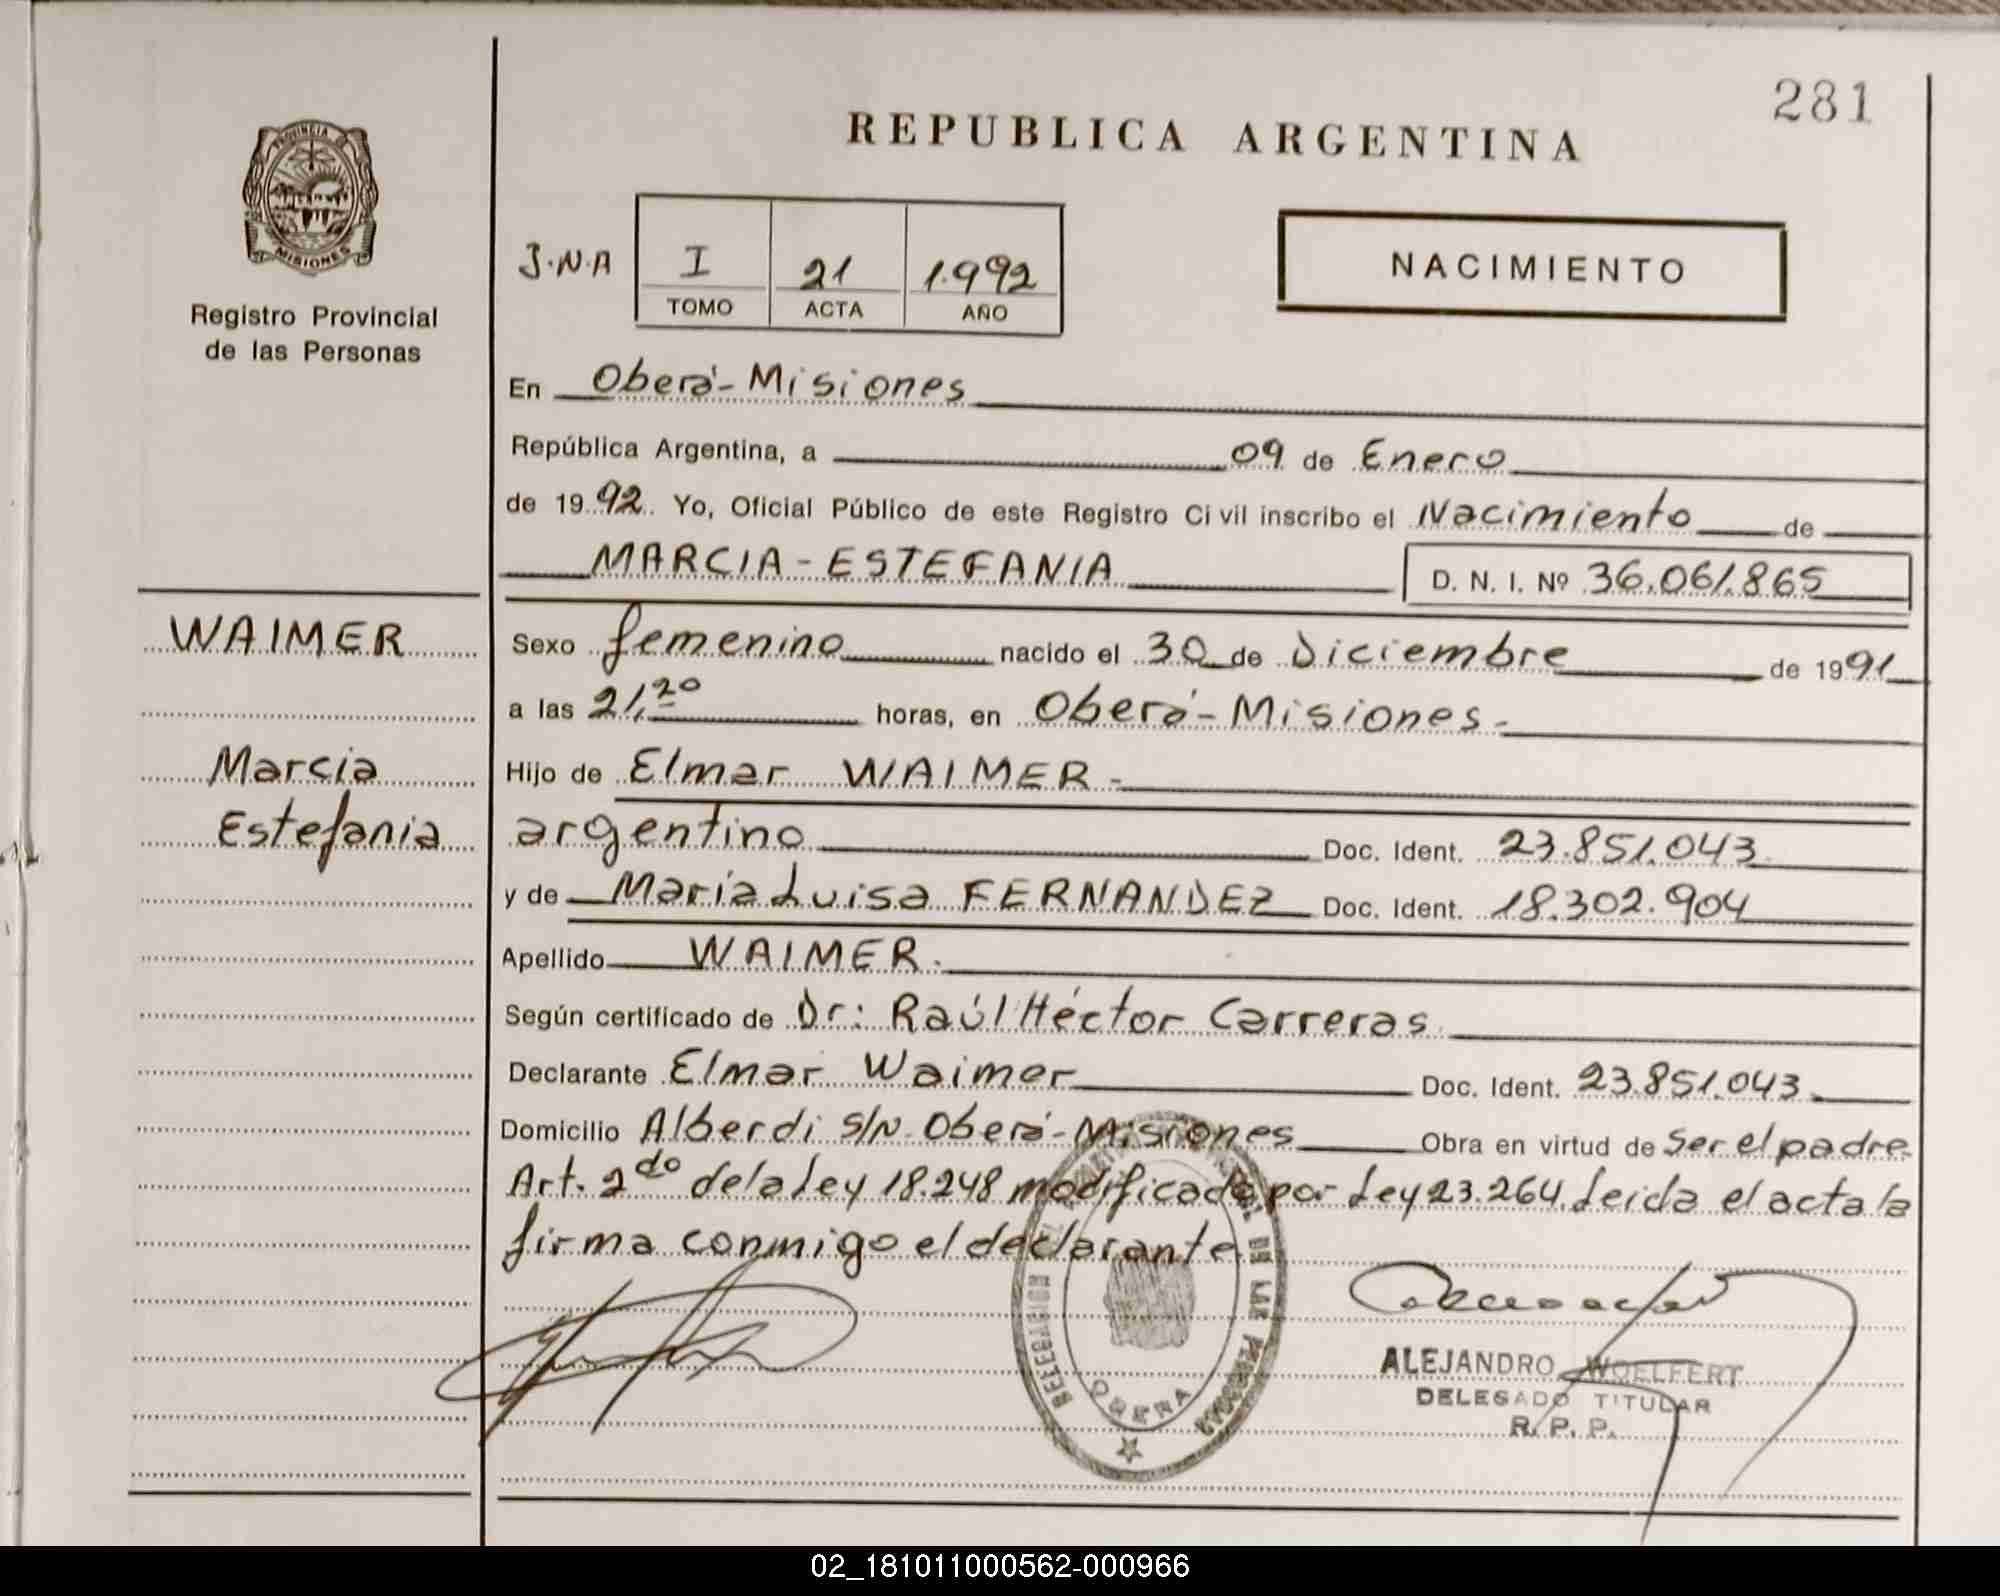 281
REPUBLICA ARGENTINA
PROVINCIA DE
MISIONES
Registro Provincial
de las Personas
J.N.A
I 21 1.992
TOMO ACTA AÑO
NACIMIENTO
En Oberá-Misiones
República Argentina, a 09 de Enero
de 1992. Yo, Oficial Público de este Registro Civil inscribo el Nacimiento de
MARCIA-ESTEFANIA D. N. I. Nº 36.061.865
WAIMER
Marcia
Estefania
Sexo femenino nacido el 30 de Diciembre de 1991
a las 21,20 horas, en Oberá-Misiones-
Hijo de Elmar WAIMER-
argentino Doc. Ident. 23.851.043
y de María Luisa FERNANDEZ Doc. Ident. 18.302.904
Apellido WAIMER.
Según certificado de Dr: Raúl Héctor Carreras
Declarante Elmar Waimer Doc. Ident. 23.851.043
Domicilio Alberdi S/N-Oberá-Misiones Obra en virtud de Ser el padre
Art. 2do de la ley 18.248 modificado por Ley 23.264. Leida el acta la
firma conmigo el declarante
DE LAS PERSONAS
OBERA
ALEJANDRO WOELFERT
DELEGADO TITULAR
R. P. P.
02_181011000562-000966